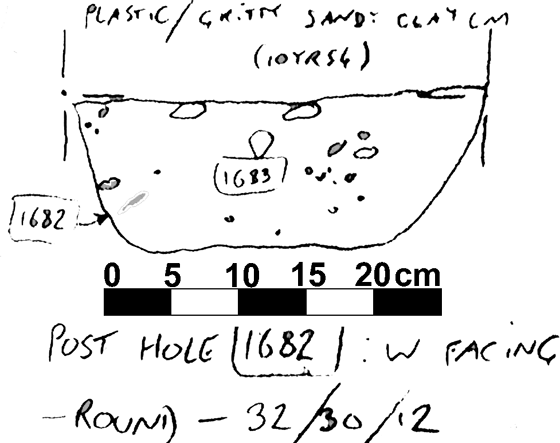 PLASTIC/GRITTY SANDY CLAY CM
(10YR56)
1683
1682
0 5 10 15 20cm
POST HOLE [1682] : W FACING
-ROUND - 32/30/12